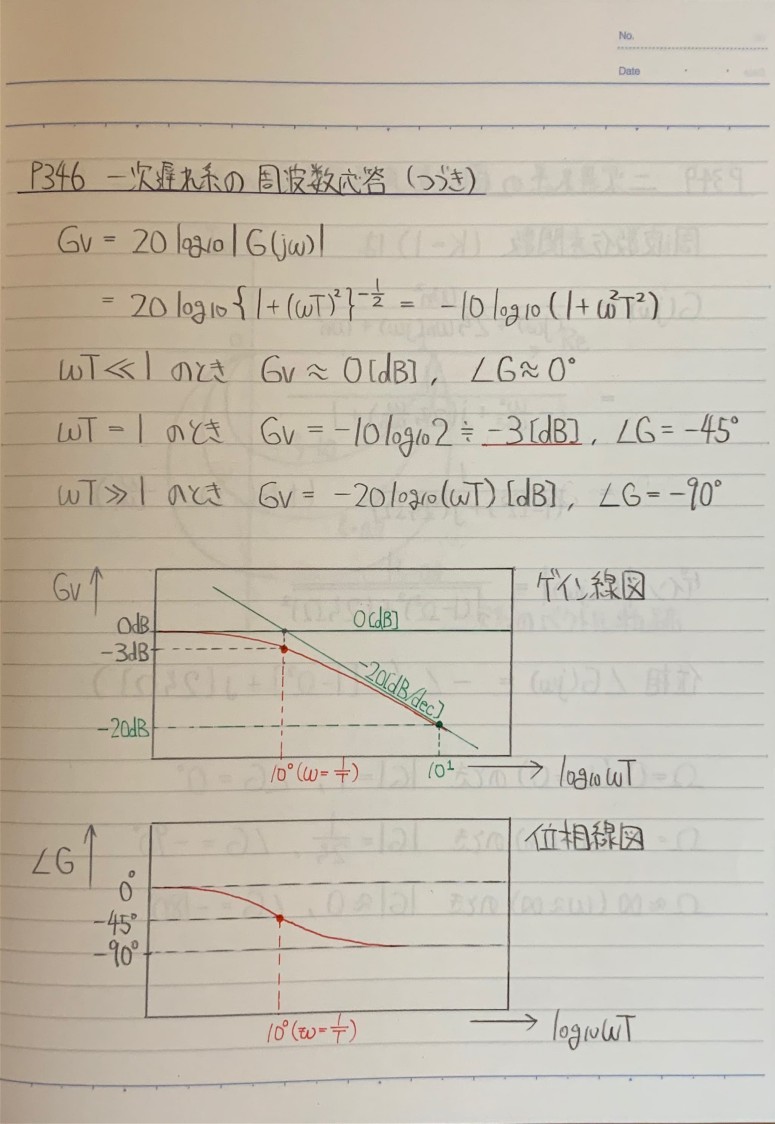 No.
Date
P346 一次遅れ系の周波数応答 (つづき)
Gv = 20 log10 |G(jω)|
= 20 log10 {1+(ωT)²}^-1/2 = -10 log10 (1+ω²T²)
ωT ≪ 1 のとき Gv ≈ 0 [dB], ∠G ≈ 0°
ωT = 1 のとき Gv = -10 log10 2 ≒ -3 [dB], ∠G = -45°
ωT ≫ 1 のとき Gv = -20 log10 (ωT) [dB], ∠G = -90°
Gv ↑
ゲイン線図
0dB
0[dB]
-3dB
-20[dB/dec]
-20dB
10⁰ (ω=1/T)
10¹
→ log10 ωT
∠G ↑
位相線図
0°
-45°
-90°
10⁰ (ω=1/T)
→ log10 ωT